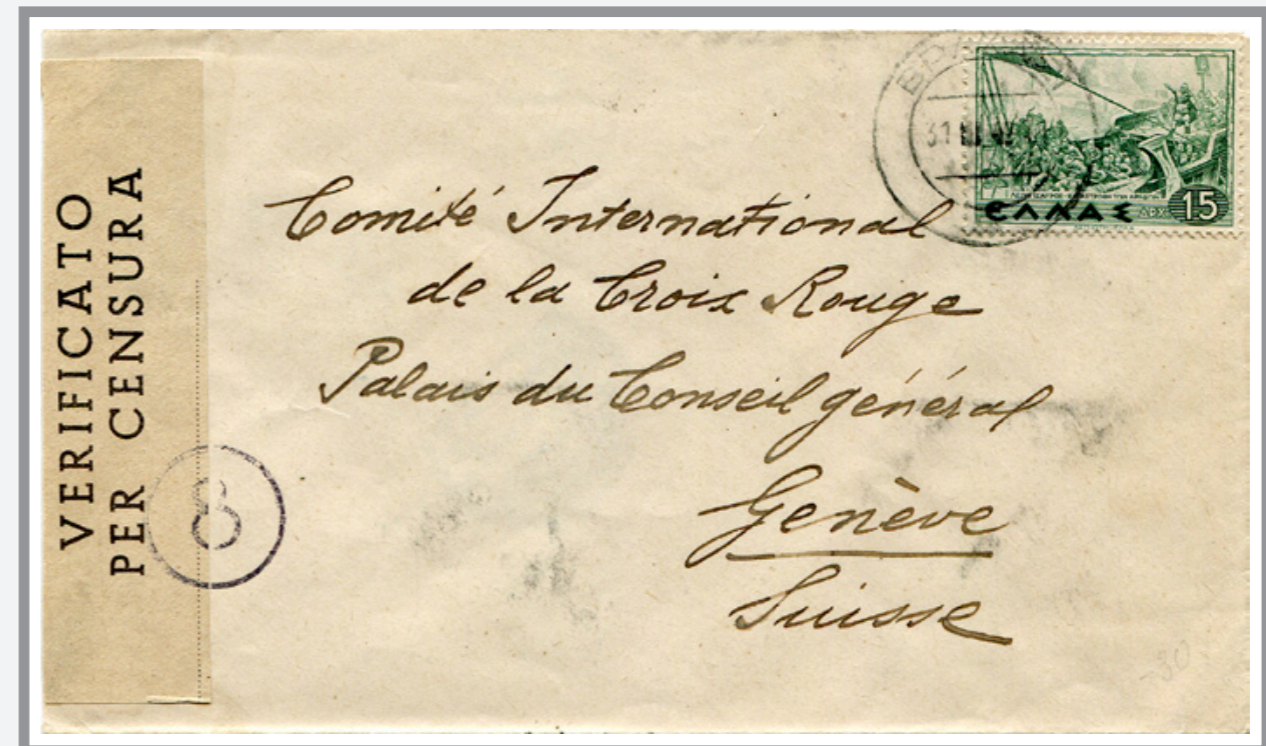 VERIFICATO
PER CENSURA
8
ΕΛΛΑΣ ΔΡΧ 15
Comité International
de la Croix Rouge
Palais du Conseil général
Genève
Suisse
30